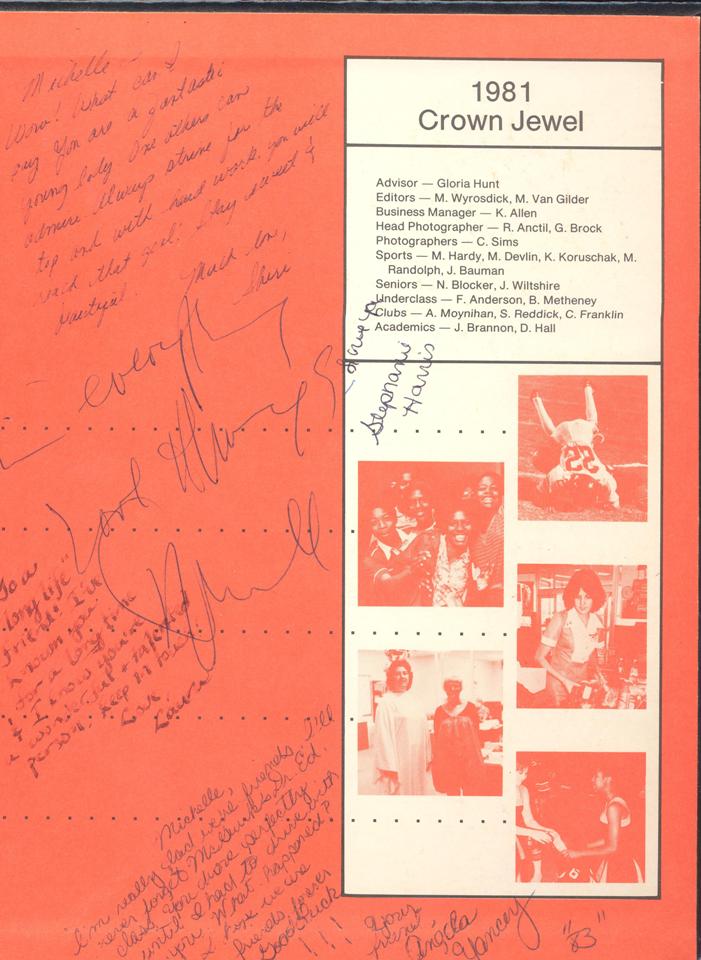 Michelle —
Wow! What can I
say You are a fantastic
young lady One others can
admire. Always strive for the
top and with hard work, you will
reach that goal; Stay sweet &
Much love,
Sheri
everything
1981
Crown Jewel
Advisor — Gloria Hunt
Editors — M. Wyrosdick, M. Van Gilder
Business Manager — K. Allen
Head Photographer — R. Anctil, G. Brock
Photographers — C. Sims
Sports — M. Hardy, M. Devlin, K. Koruschak, M.
Randolph, J. Bauman
Seniors — N. Blocker, J. Wiltshire
Underclass — F. Anderson, B. Metheney
Clubs — A. Moynihan, S. Reddick, C. Franklin
Academics — J. Brannon, D. Hall
Stephanie
Harris
22
To a
"long life"
friend! I've
known you
for a long time
& I know you're a
wonderful & talented
person. Keep in touch
Love,
Laura
Michelle,
I'm really glad we're friends. I'll
never forget Dr. Ed.
class. You drove perfectly
until I had to drive with
you. What happened?
I hope we are
friends forever
Good Luck
!!!
Your
friend
Angela
Yancey
"83"